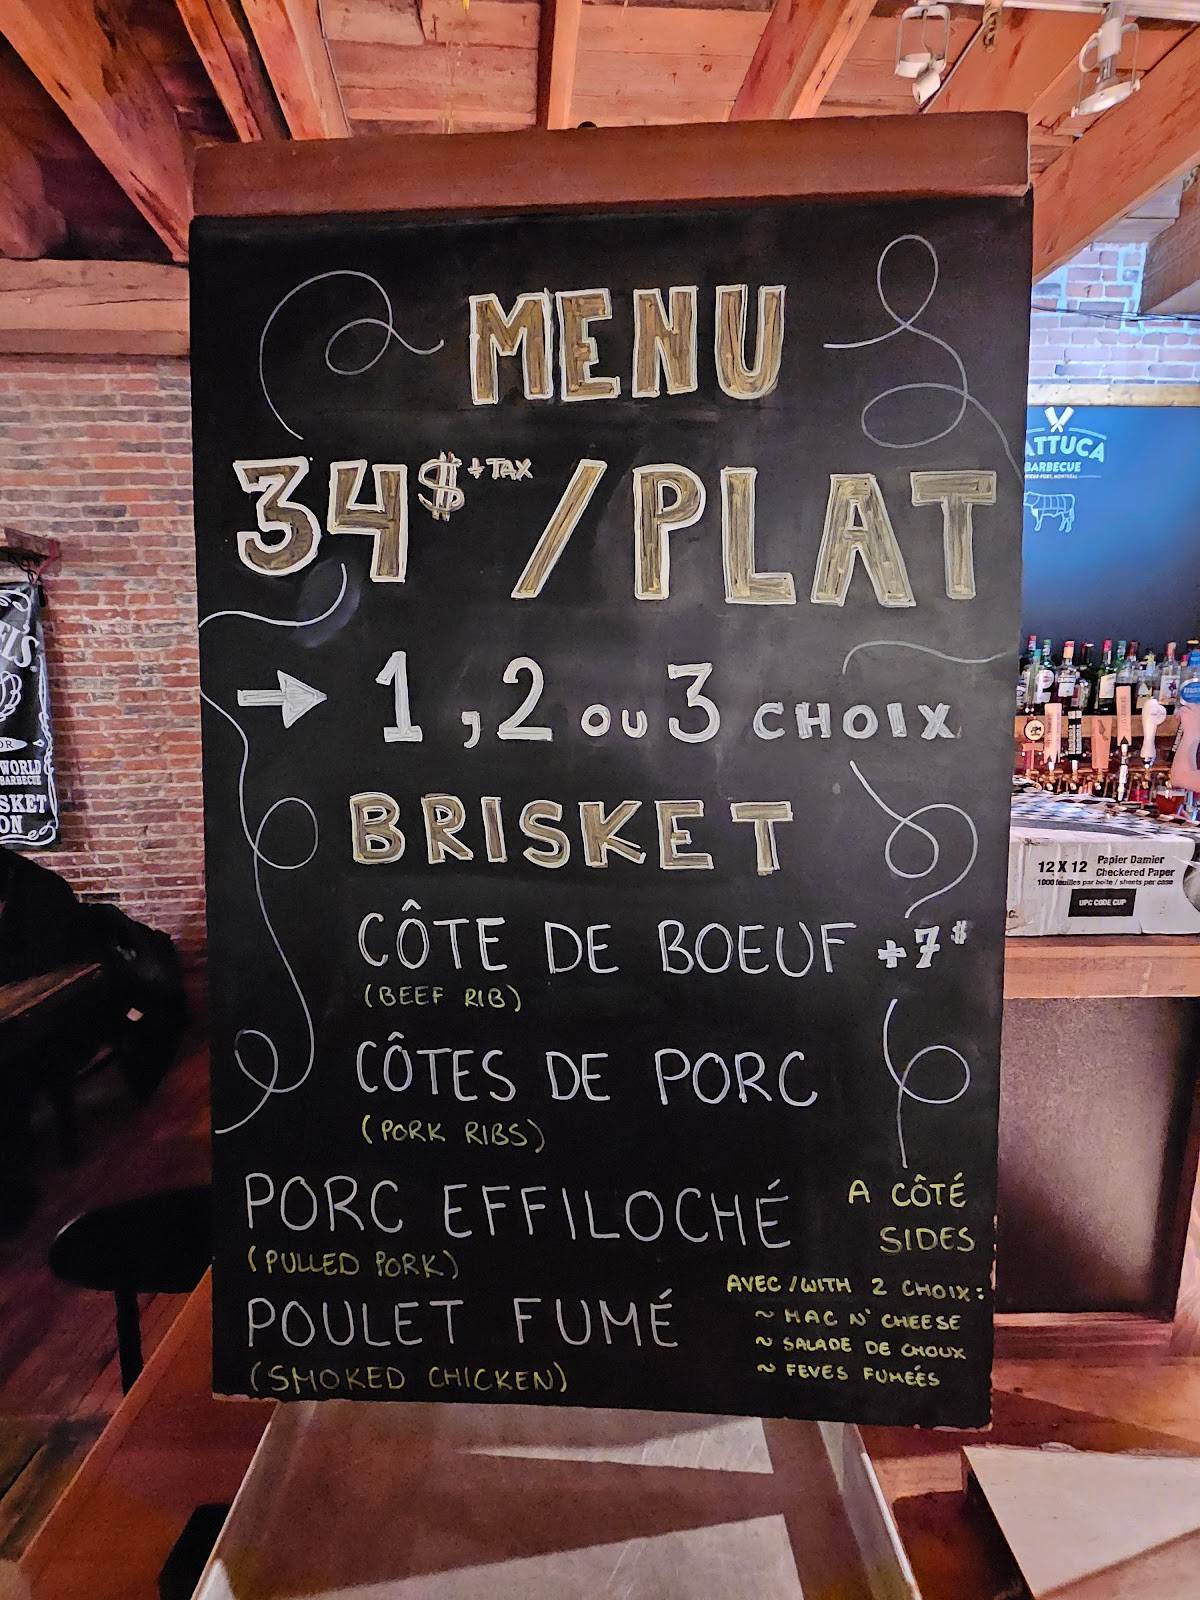 MENU
34$ + TAX / PLAT
1, 2 OU 3 CHOIX
BRISKET
CÔTE DE BOEUF +7$
(BEEF RIB)
CÔTES DE PORC
(PORK RIBS)
PORC EFFILOCHÉ
(PULLED PORK)
POULET FUMÉ
(SMOKED CHICKEN)
A CÔTÉ
SIDES
AVEC/WITH 2 CHOIX:
~ MAC N' CHEESE
~ SALADE DE CHOUX
~ FEVES FUMÉES
ATTUCA
BARBECUE
12 X 12 Papier Damier
Checkered Paper
1000 feuilles par boîte / sheets per case
UPC CODE CUP
WORLD
BARBECUE
SKET
ON